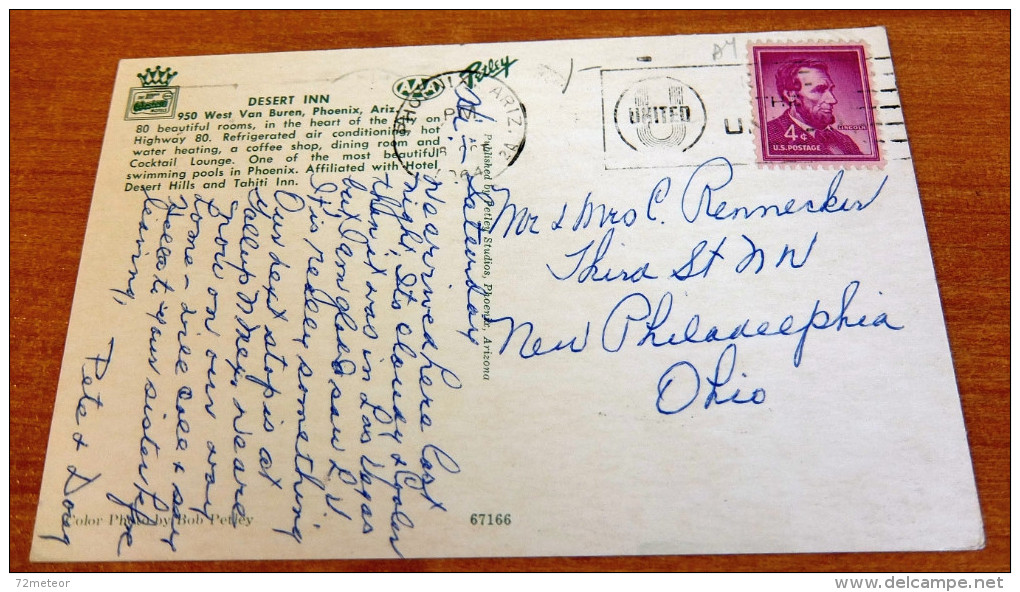 DESERT INN
950 West Van Buren, Phoenix, Ariz.
80 beautiful rooms, in the heart of the city on
Highway 80. Refrigerated air conditioning, hot
water heating, a coffee shop, dining room and
Cocktail Lounge. One of the most beautiful
swimming pools in Phoenix. Affiliated with Hotel
Desert Hills and Tahiti Inn.
AAA
Petley
Published by Petley Studios, Phoenix, Arizona
ARIZ.
UNITED
TH
U
4¢
LINCOLN
U.S. POSTAGE
Hi - Saturday
We arrived here last
night. Its cloudy & cooler
than it was in Las Vegas
but Am glad I saw L.V.
It is really something
Our next stop is at
Gallup N Mex. We are
now on our way
home - will call & say
Hello to your sister before
leaving,
Pete & Doug
Mr & Mrs C. Rennecker
Third St NW
New Philadelphia
Ohio
Color Photo by Bob Petley
67166
72meteor
delcampe.net